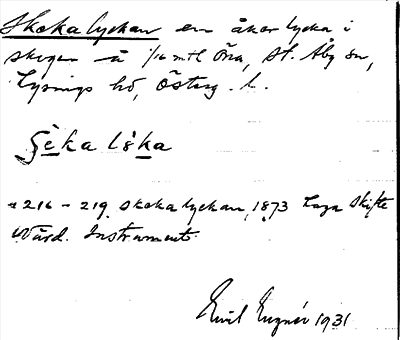 Skokalyckan en åkerlycka i
skogen å 1/16 mtl Öna, St. Åby sn,
Lysings hd, Österg. l.
216 - 219 Skokalyckan, 1873 Laga Skifte
Värd. Instrument.
Emil 1931